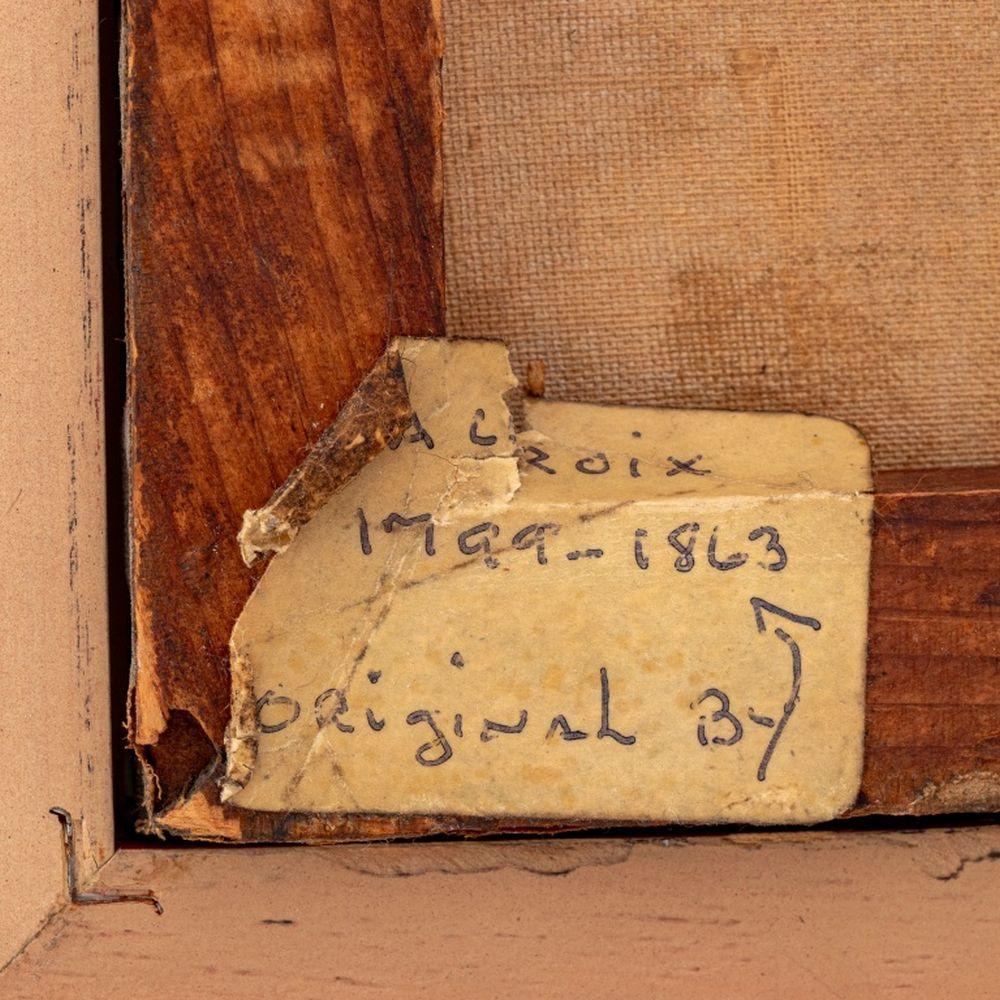 A CROIX
1799-1863
ORiginAL By